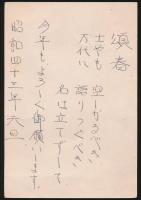 頌春
士やも
空しかるべき
万代に
語りつぐべき
名は立てずして
今年もよろしく御願いします
昭和四十三年元旦